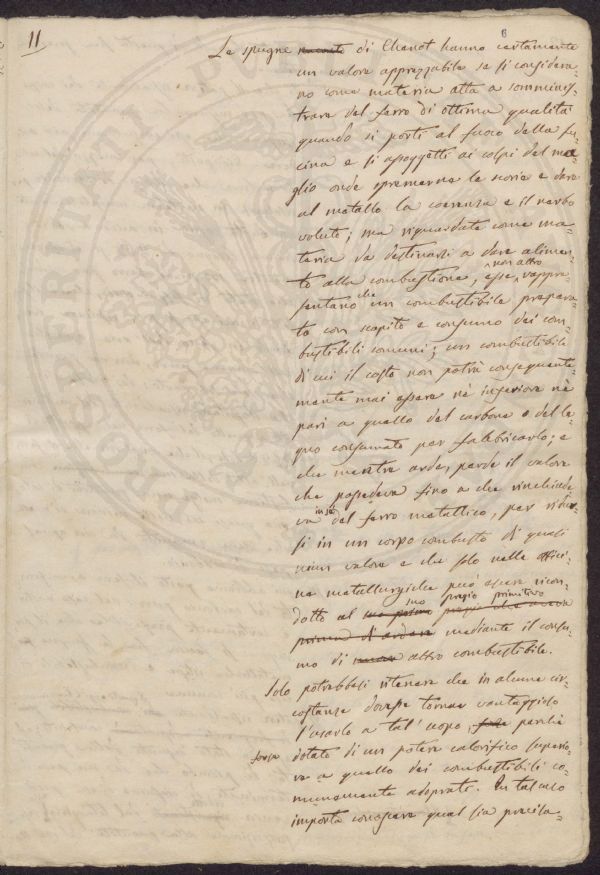 11
6
Le spugne di Chenot hanno certamente
un valore apprezzabile se si considera-
no come materia atta a sommini-
strare del ferro di ottima qualità
quando si porti al fuoco della fu-
cina e si assoggetti ai colpi del ma-
glio onde spremerne le scorie e dare
al metallo la coerenza e il nerbo
voluto; ma riguardate come ma-
teria da destinarsi a dare alimen-
to alla combustione, esse non altro rappre-
sentano che un combustibile prepara-
to con scapito e consumo dei com-
bustibili comuni; un combustibile
di cui il costo non potrà conseguente-
mente mai essere nè inferiore nè
pari a quello del carbone o del le-
gno consumato per fabbricarlo; e
che mentre arde, perde il valore
che possedeva fino a che rinchiude-
va in se del ferro metallico, per ridur-
si in un corpo combusto di quasi
niun valore e che solo nelle offici-
ne metallurgiche può essere ricon-
dotto al suo pregio primitivo
prima di ardere mediante il consu-
mo di altro combustibile.
Solo potrebbesi ritenere che in alcune cir-
costanze dovesse tornar vantaggioso
l'usarlo a tal' uopo perchè
forse dotato di un potere calorifico superio-
re a quello dei combustibili co-
munemente adoprati. In tal caso
importa conoscere qual sia precisa-